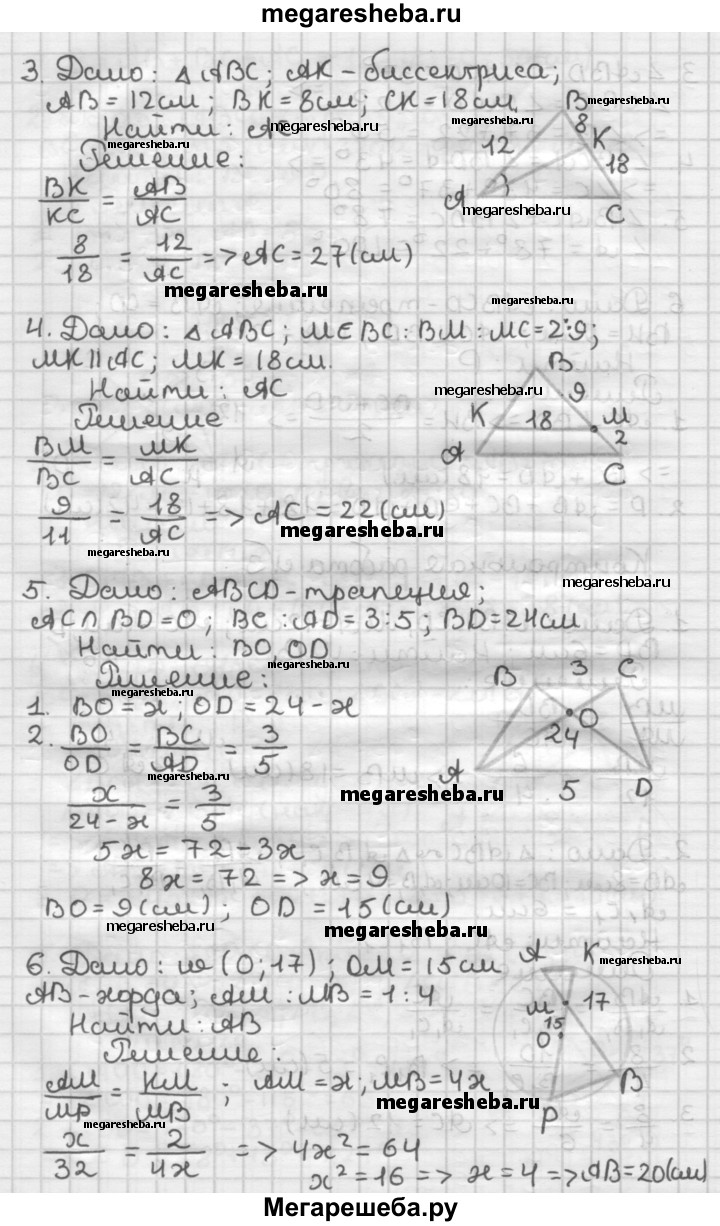 megaresheba.ru
3. Дано: △ABC; AK – биссектриса;
AB = 12 см; BK = 8 см; CK = 18 см.
Найти: AC
megaresheba.ru
megaresheba.ru
Решение:
BK/KC = AB/AC
8/18 = 12/AC => AC = 27 (см)
megaresheba.ru
B
8
K
12
18
A
C
megaresheba.ru
megaresheba.ru
4. Дано: △ABC; M∈BC: BM : MC = 2:9;
MK || AC; MK = 18 см.
Найти: AC
Решение
BM/BC = MK/AC
9/11 = 18/AC => AC = 22 (см)
megaresheba.ru
megaresheba.ru
megaresheba.ru
B
9
K
18
M
2
A
C
megaresheba.ru
5. Дано: ABCD – трапеция;
AC ∩ BD = O; BC : AD = 3:5; BD = 24 см
Найти: BO, OD
megaresheba.ru
Решение:
megaresheba.ru
1. BO = x; OD = 24 - x
2. BO/OD = BC/AD = 3/5
megaresheba.ru
x/(24 - x) = 3/5
megaresheba.ru
5x = 72 - 3x
8x = 72 => x = 9
BO = 9 (см); OD = 15 (см)
megaresheba.ru
megaresheba.ru
B
3
C
O
24
A
5
D
6. Дано: ω (O; 17); OM = 15 см
AB – хорда; AM : MB = 1 : 4
Найти: AB
Решение:
AM/MP = KM/MB; AM = x, MB = 4x
megaresheba.ru
megaresheba.ru
x/32 = 2/4x => 4x² = 64
x² = 16 => x = 4 => AB = 20 (см)
A
K
megaresheba.ru
M
17
15
O
B
P
megaresheba.ru
Мегарешеба.ру